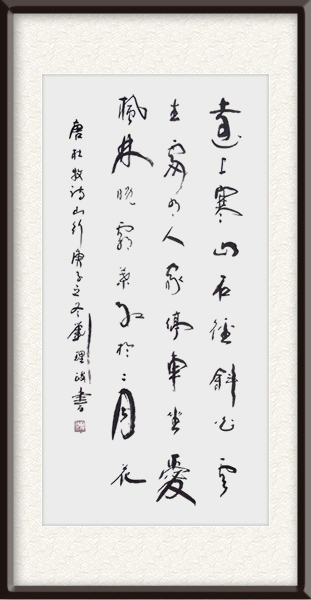 遠上寒山石徑斜白雲
生處有人家停車坐愛
楓林晚霜葉紅於二月花
唐杜牧詩山行庚子之冬劉理書